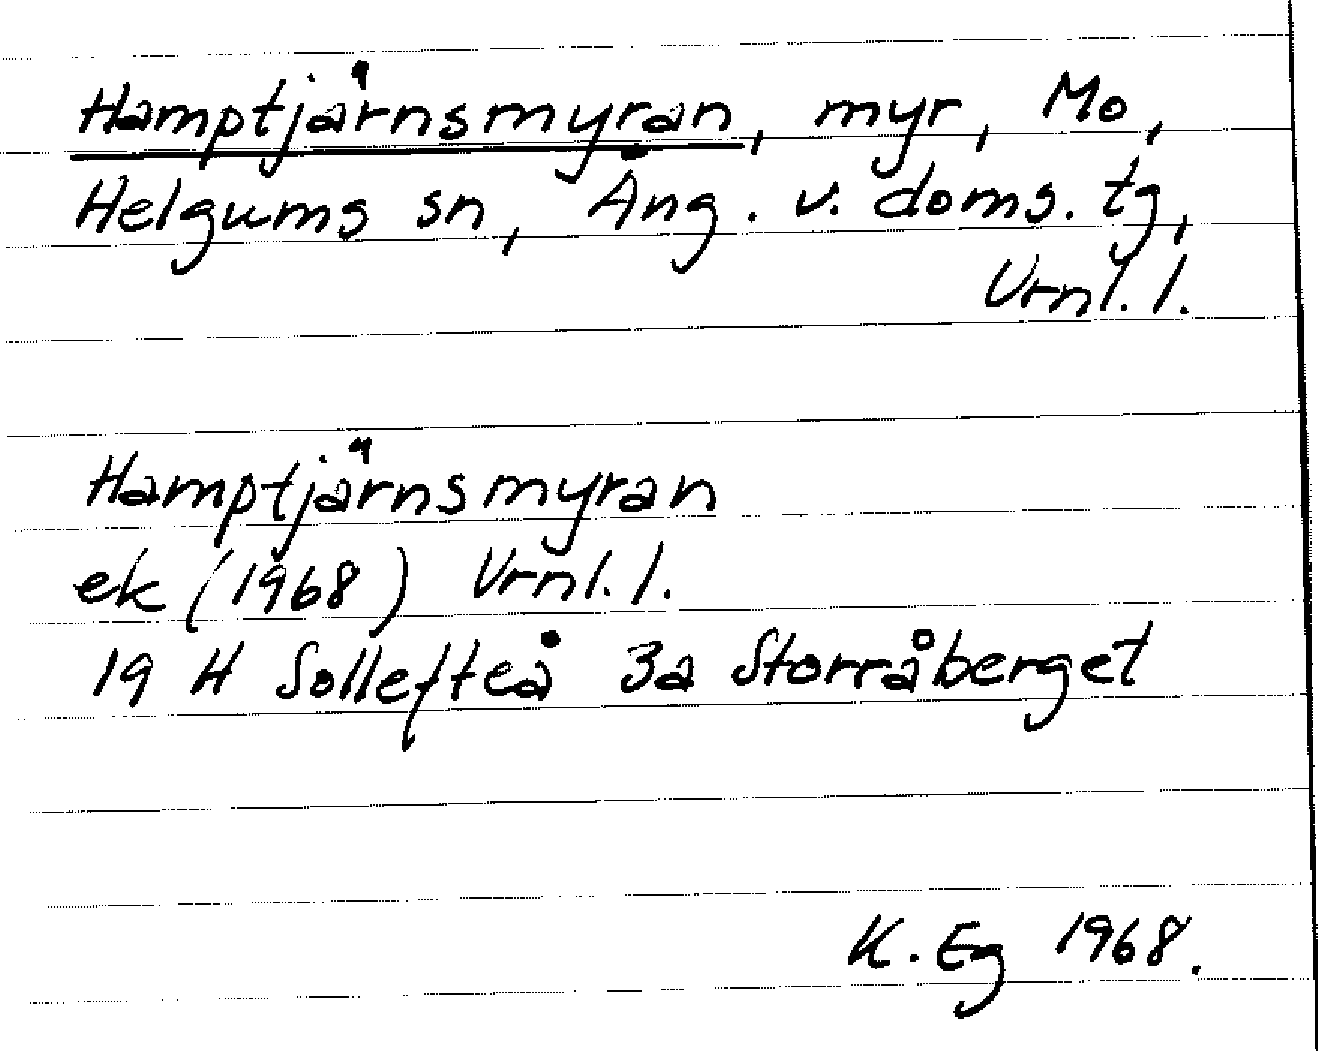 Hamptjärnsmyran, myr, Mo,
Helgums sn, Ång. v. doms. tg,
Vrnl. l.
Hamptjärnsmyran
ek (1968) Vrnl. l.
19 H Sollefteå 3a Storråberget
K. Eg 1968.